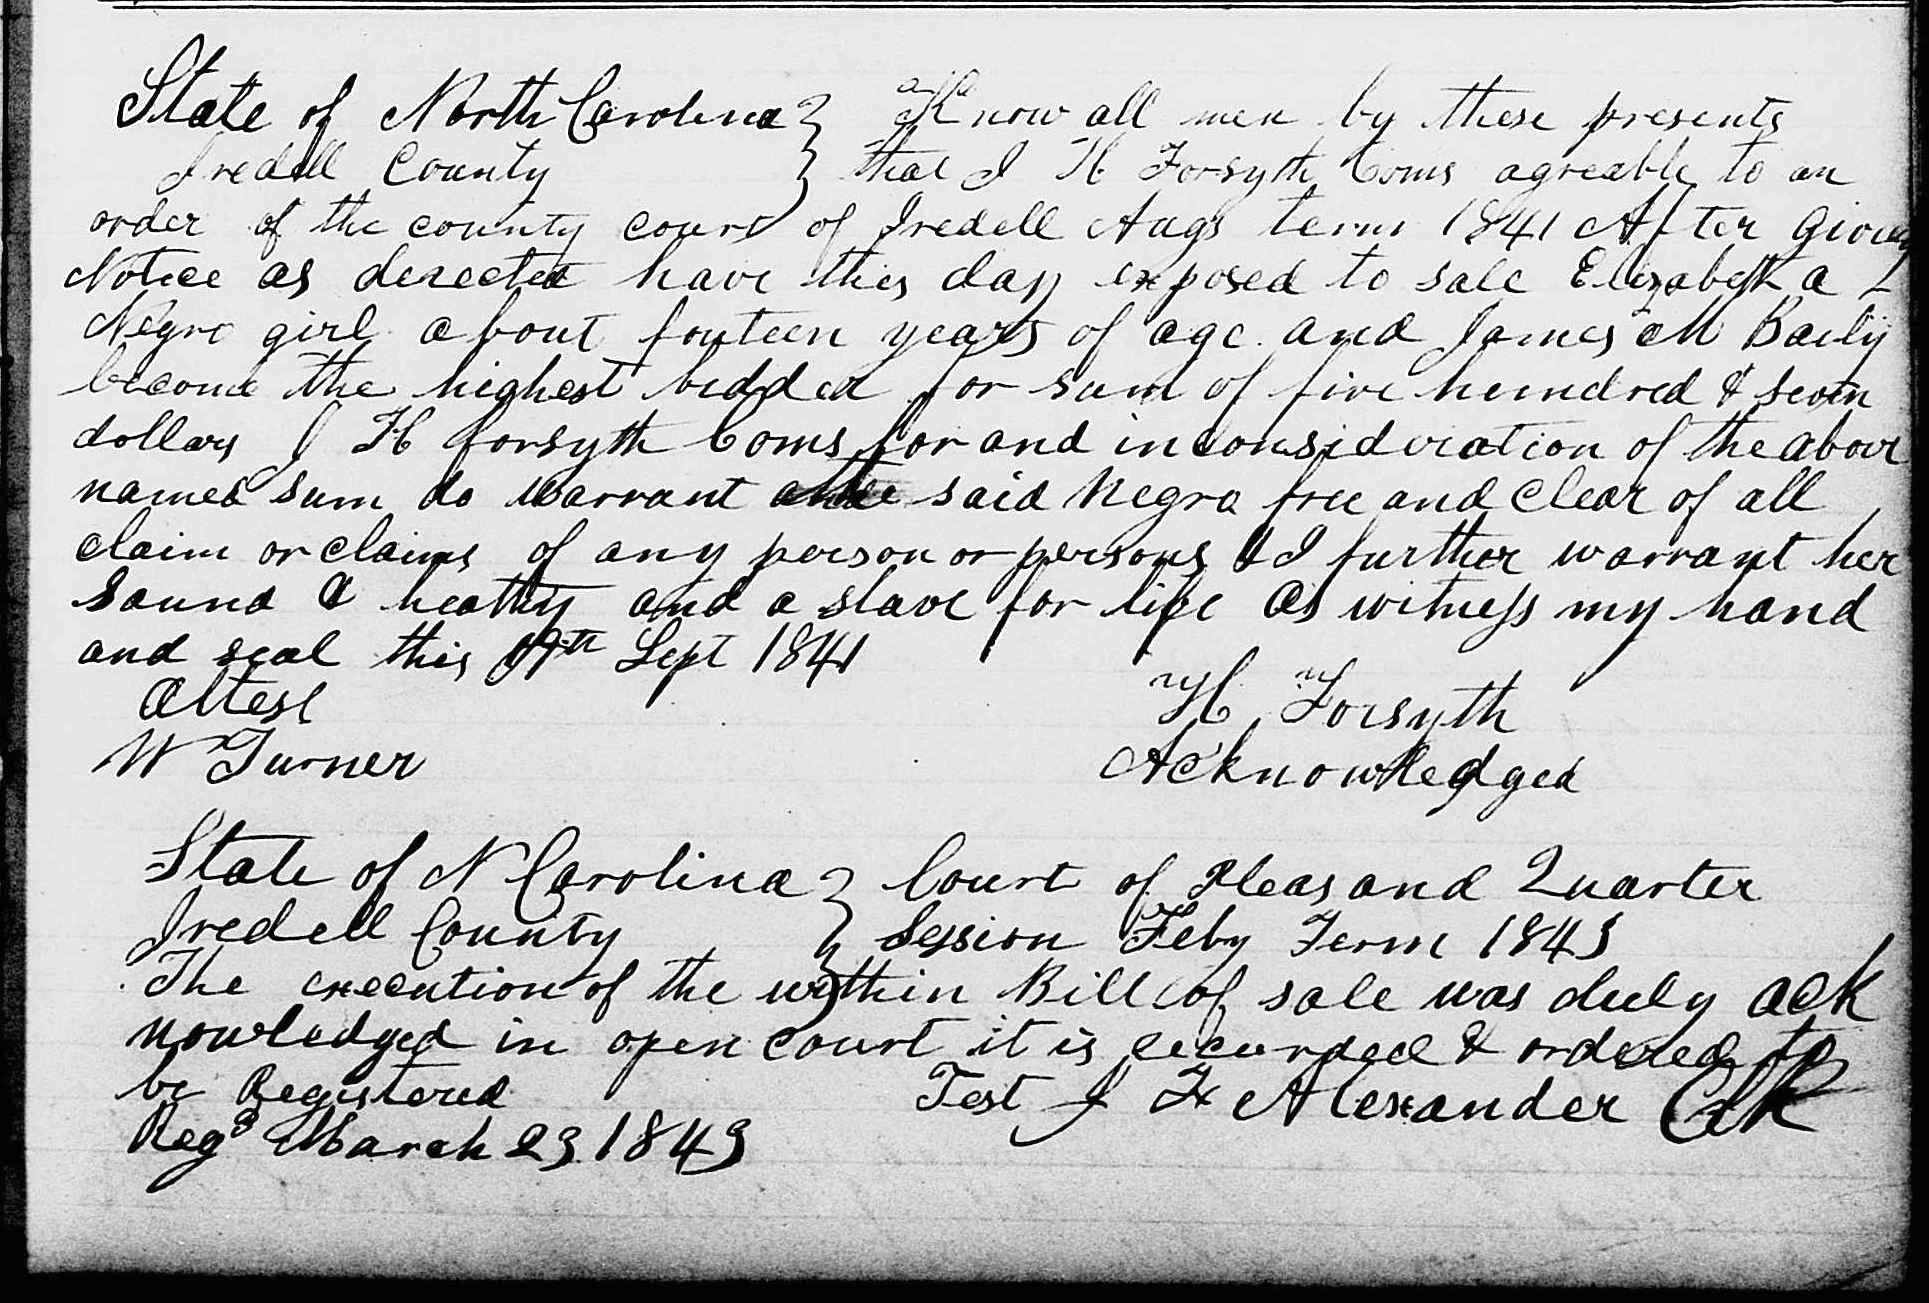 State of North Carolina } Know all men by these presents
Iredell County } that I H Forsyth Coms agreable to an
order of the county court of Iredell Augs term 1841 After giving
Notice as derected have this day exposed to sale Elizabeth a
Negro girl about fouteen years of age and James M Baily
become the highest bidder for sum of five hundred & seven
dollars I H forsyth Coms for and in consideration of the above
named sum do warrant the said Negro free and Clear of all
claim or claims of any person or persons & I further warrant her
Sound & heathy and a slave for life As witness my hand
and seal this Sept 1841
Attest H Forsyth
W Turner Acknowledged
State of N Carolina } Court of Pleas and Quarter
Iredell County } Session Feby Term 1843
The execution of the within Bill of sale was duly ack
nowledged in open court it is recurded & ordered to
be Registered Test J F Alexander Clk
Regd March 23 1843